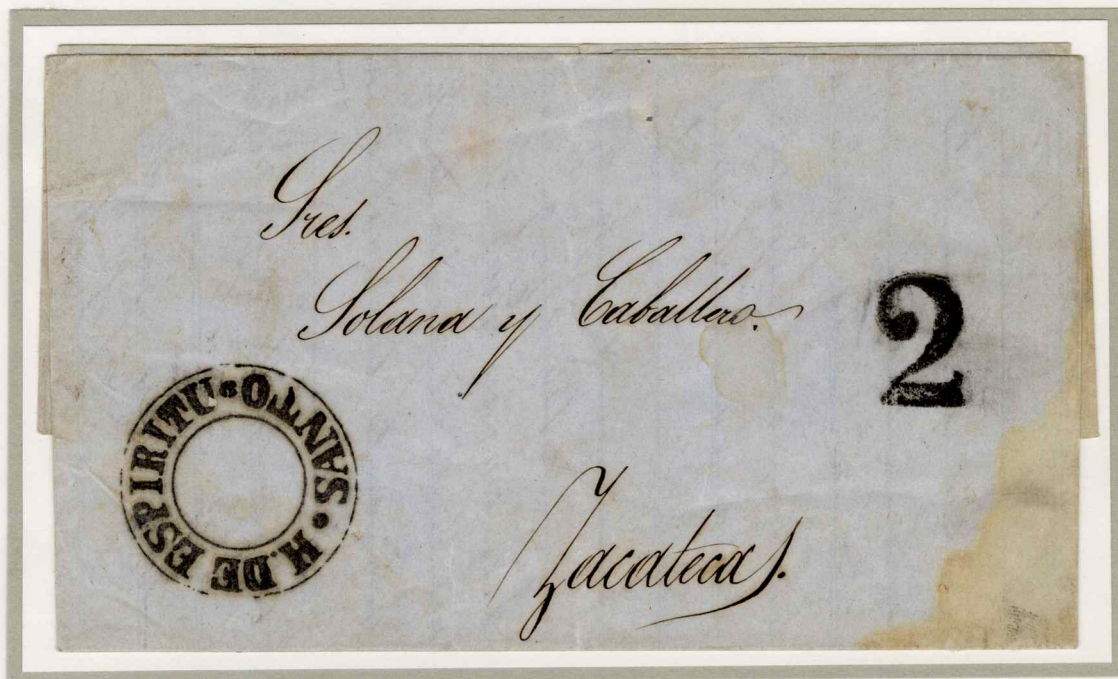 Sres.
Solana y Caballero.
2
H. DE ESPIRITU • SANTO •
Zacatecas.